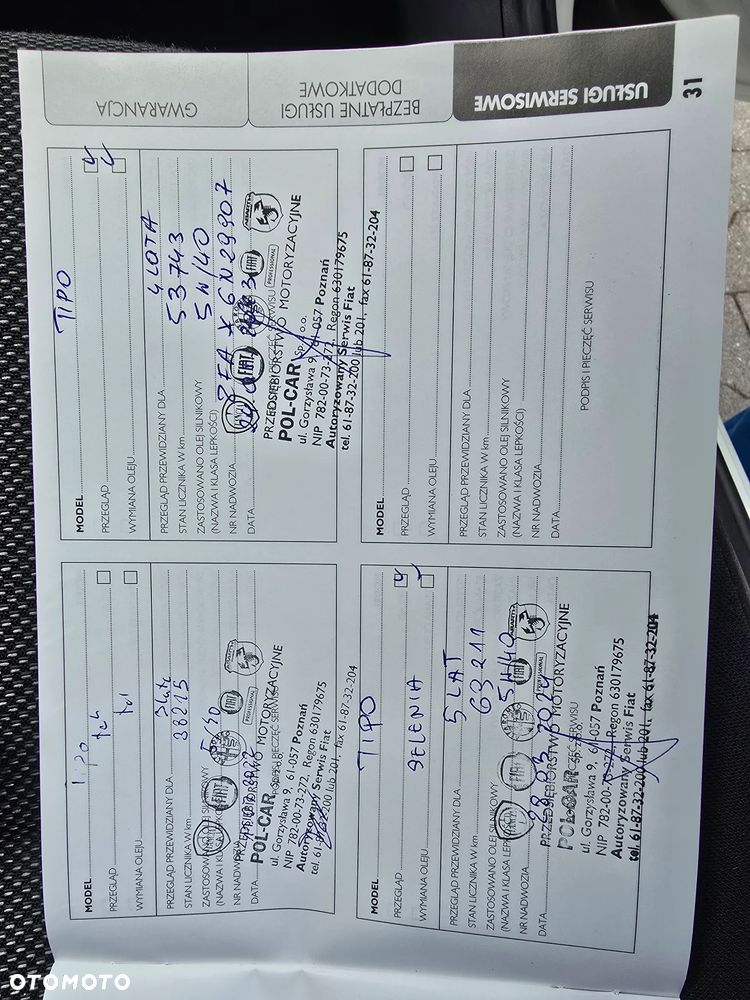 GWARANCJA
BEZPŁATNE USŁUGI
DODATKOWE
USŁUGI SERWISOWE
31
MODEL Tipo
PRZEGLĄD tak
WYMIANA OLEJU tak
PRZEGLĄD PRZEWIDZIANY DLA
STAN LICZNIKA W km 38215
ZASTOSOWANO OLEJ SILNIKOWY
(NAZWA I KLASA LEPKOŚCI)
NR NADWOZIA
DATA
PRZEDSIĘBIORSTWO MOTORYZACYJNE
POL-CAR
ul. Gorzysława 9, 61-057 Poznań
NIP 782-00-73-272, Regon 630179675
Autoryzowany Serwis Fiat
tel. 61-87-32-200 lub 201, fax 61-87-32-204
MODEL TIPO
PRZEGLĄD
WYMIANA OLEJU
PRZEGLĄD PRZEWIDZIANY DLA 4 LATA
STAN LICZNIKA W km 53743
ZASTOSOWANO OLEJ SILNIKOWY 5W/40
(NAZWA I KLASA LEPKOŚCI)
NR NADWOZIA
DATA
ABARTH
FIAT
PROFESSIONAL
PRZEDSIĘBIORSTWO MOTORYZACYJNE
POL-CAR Sp. z o.o.
ul. Gorzysława 9, 61-057 Poznań
NIP 782-00-73-272, Regon 630179675
Autoryzowany Serwis Fiat
tel. 61-87-32-200 lub 201, fax 61-87-32-204
MODEL TIPO
PRZEGLĄD
WYMIANA OLEJU SELENIA
PRZEGLĄD PRZEWIDZIANY DLA 5 LAT
STAN LICZNIKA W km 63211
ZASTOSOWANO OLEJ SILNIKOWY 5W/40
(NAZWA I KLASA LEPKOŚCI)
NR NADWOZIA
DATA
PRZEDSIĘBIORSTWO MOTORYZACYJNE
POL-CAR
ul. Gorzysława 9, 61-057 Poznań
NIP 782-00-73-272, Regon 630179675
Autoryzowany Serwis Fiat
tel. 61-87-32-200 lub 201, fax 61-87-32-204
MODEL
PRZEGLĄD
WYMIANA OLEJU
PRZEGLĄD PRZEWIDZIANY DLA
STAN LICZNIKA W km
ZASTOSOWANO OLEJ SILNIKOWY
(NAZWA I KLASA LEPKOŚCI)
NR NADWOZIA
DATA
PODPIS I PIECZĘĆ SERWISU
OTOMOTO